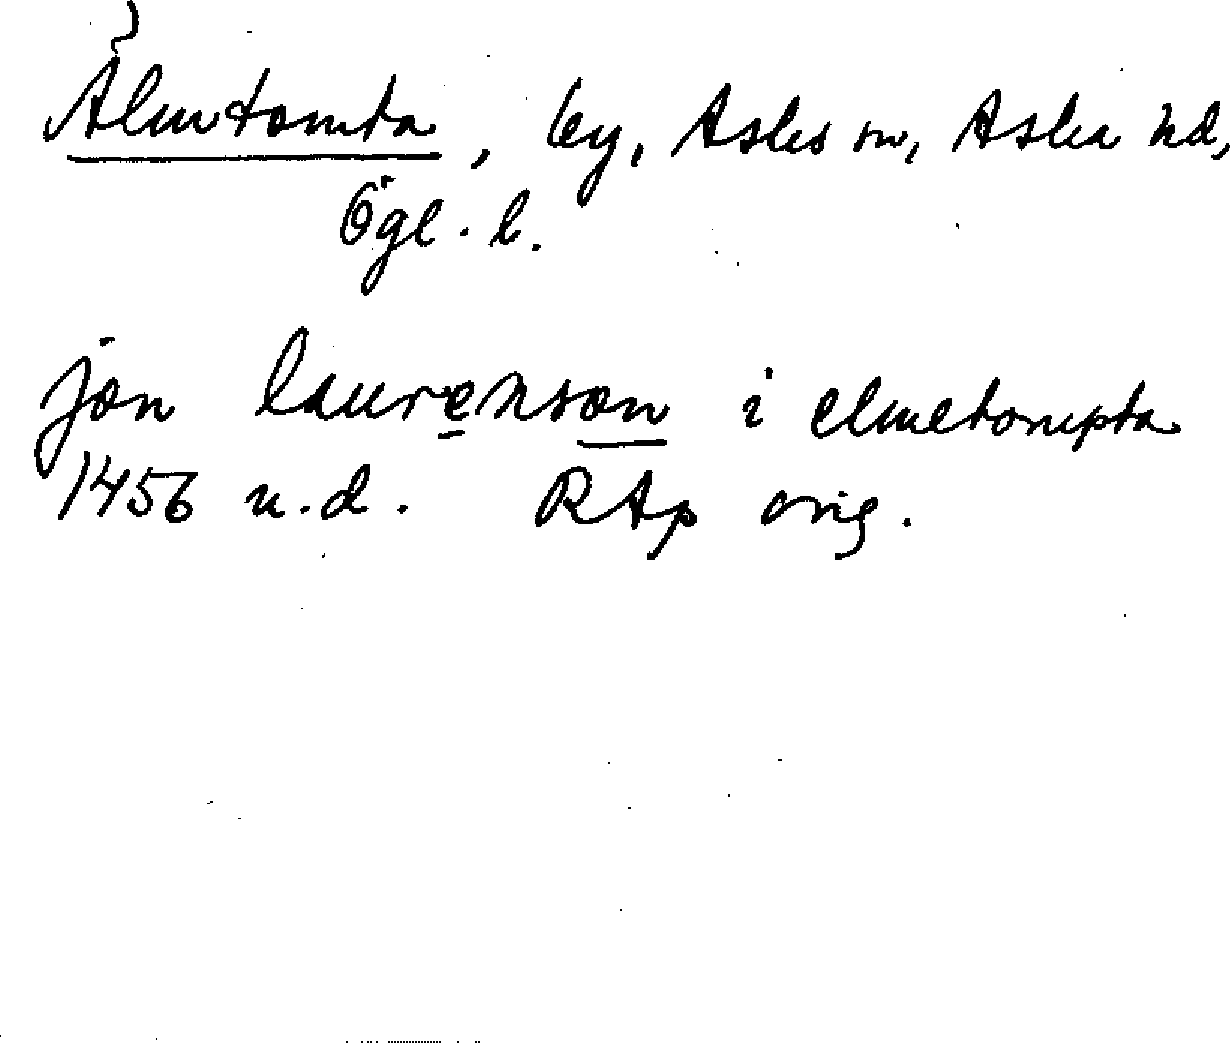 Älmtomta, by, Asks sn, Aska hd,
Ögl. l.
jøn laurenssøn i elmetompta
1456 u.d. RAp orig.